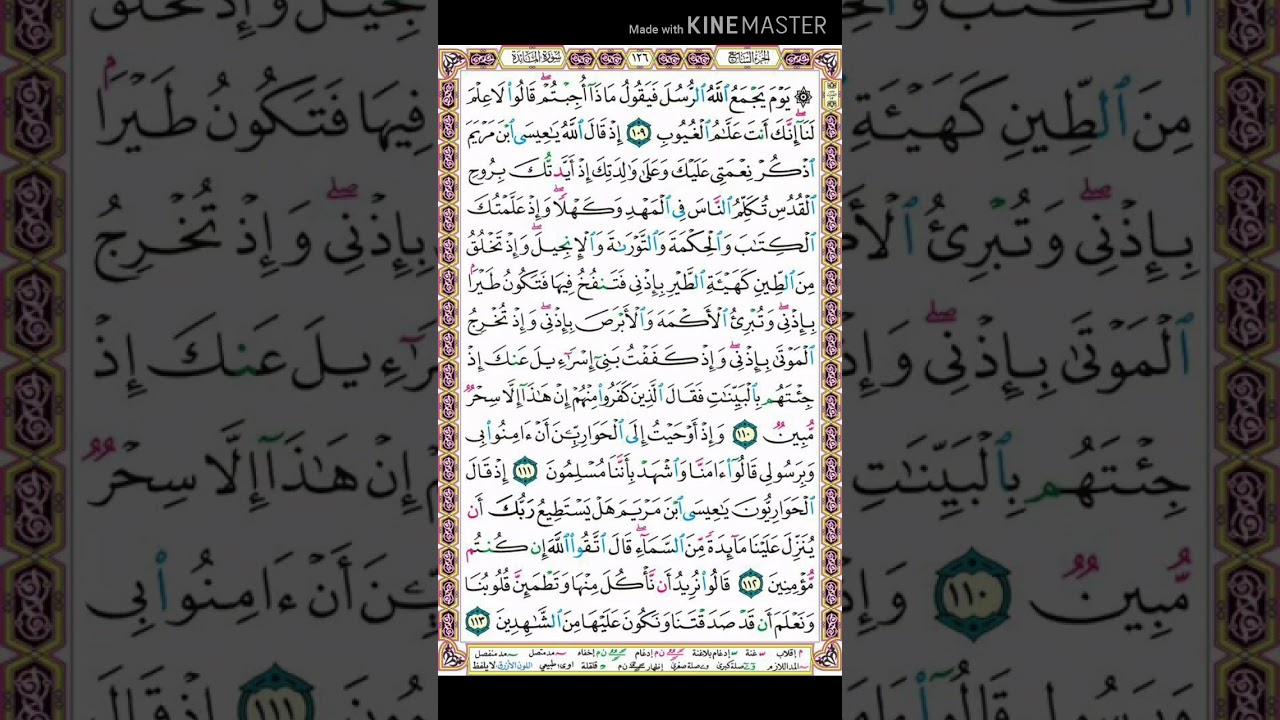 Made with KINEMASTER
الجزء السابع ١٢٦ سورة المائدة
۞ يَوْمَ يَجْمَعُ ٱللَّهُ ٱلرُّسُلَ فَيَقُولُ مَاذَآ أُجِبْتُمْ ۖ قَالُوا۟ لَا عِلْمَ
لَنَآ ۖ إِنَّكَ أَنتَ عَلَّـٰمُ ٱلْغُيُوبِ ١٠٩ إِذْ قَالَ ٱللَّهُ يَـٰعِيسَى ٱبْنَ مَرْيَمَ
ٱذْكُرْ نِعْمَتِى عَلَيْكَ وَعَلَىٰ وَٰلِدَتِكَ إِذْ أَيَّدتُّكَ بِرُوحِ
ٱلْقُدُسِ تُكَلِّمُ ٱلنَّاسَ فِى ٱلْمَهْدِ وَكَهْلًا ۖ وَإِذْ عَلَّمْتُكَ
ٱلْكِتَـٰبَ وَٱلْحِكْمَةَ وَٱلتَّوْرَىٰةَ وَٱلْإِنجِيلَ ۖ وَإِذْ تَخْلُقُ
مِنَ ٱلطِّينِ كَهَيْـَٔةِ ٱلطَّيْرِ بِإِذْنِى فَتَنفُخُ فِيهَا فَتَكُونُ طَيْرًۢا
بِإِذْنِى ۖ وَتُبْرِئُ ٱلْأَكْمَهَ وَٱلْأَبْرَصَ بِإِذْنِى ۖ وَإِذْ تُخْرِجُ
ٱلْمَوْتَىٰ بِإِذْنِى ۖ وَإِذْ كَفَفْتُ بَنِىٓ إِسْرَٰٓءِيلَ عَنكَ إِذْ
جِئْتَهُم بِٱلْبَيِّنَـٰتِ فَقَالَ ٱلَّذِينَ كَفَرُوا۟ مِنْهُمْ إِنْ هَـٰذَآ إِلَّا سِحْرٌ
مُّبِينٌ ١١٠ وَإِذْ أَوْحَيْتُ إِلَى ٱلْحَوَارِيِّـۧنَ أَنْ ءَامِنُوا۟ بِى
وَبِرَسُولِى قَالُوٓا۟ ءَامَنَّا وَٱشْهَدْ بِأَنَّنَا مُسْلِمُونَ ١١١ إِذْ قَالَ
ٱلْحَوَارِيُّونَ يَـٰعِيسَى ٱبْنَ مَرْيَمَ هَلْ يَسْتَطِيعُ رَبُّكَ أَن
يُنَزِّلَ عَلَيْنَا مَآئِدَةً مِّنَ ٱلسَّمَآءِ ۖ قَالَ ٱتَّقُوا۟ ٱللَّهَ إِن كُنتُم
مُّؤْمِنِينَ ١١٢ قَالُوا۟ نُرِيدُ أَن نَّأْكُلَ مِنْهَا وَتَطْمَئِنَّ قُلُوبُنَا
وَنَعْلَمَ أَن قَدْ صَدَقْتَنَا وَنَكُونَ عَلَيْهَا مِنَ ٱلشَّـٰهِدِينَ ١١٣
م إقلاب غنة إدغام بلاغنة ن م إدغام ن م إخفاء مد متصل مد منفصل
المد اللازم صلة كبرى صلة صغرى إظهار ن م قلقلة اوى: طبيعي اللون الأزرق: لا يلفظ